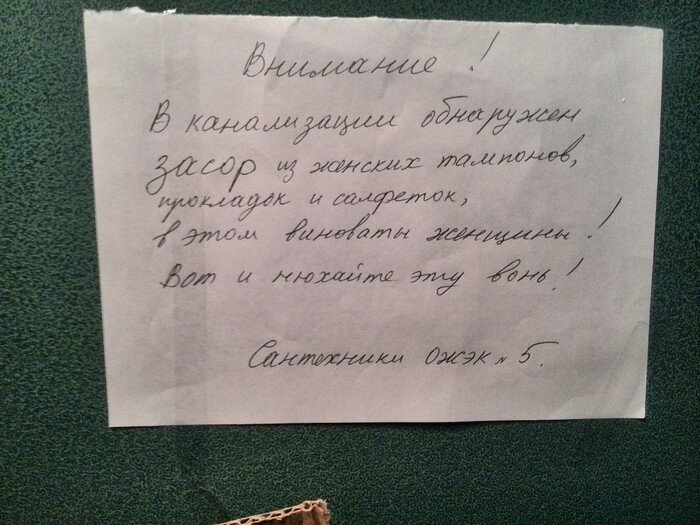 Внимание!
В канализации обнаружен
засор из женских тампонов,
прокладок и салфеток,
в этом виноваты женщины!
Вот и нюхайте эту вонь!
Сантехники ОЖЭК № 5.